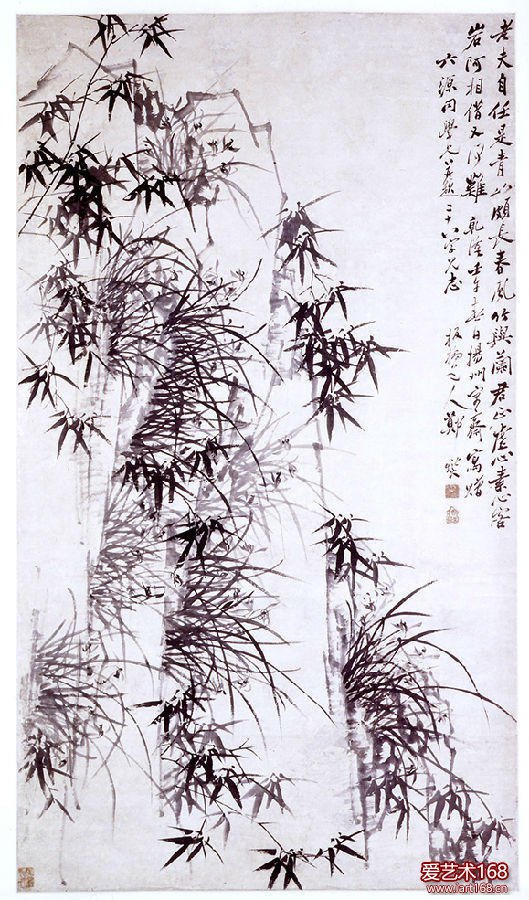 老夫自任是青山頗長春風竹與蘭君正虛心素心客
岩阿相借又何難 乾隆壬午 日揚州 齋寫贈
六源同學 二十八字見志 板橋老人鄭燮
爱艺术168
www.iart168.cn